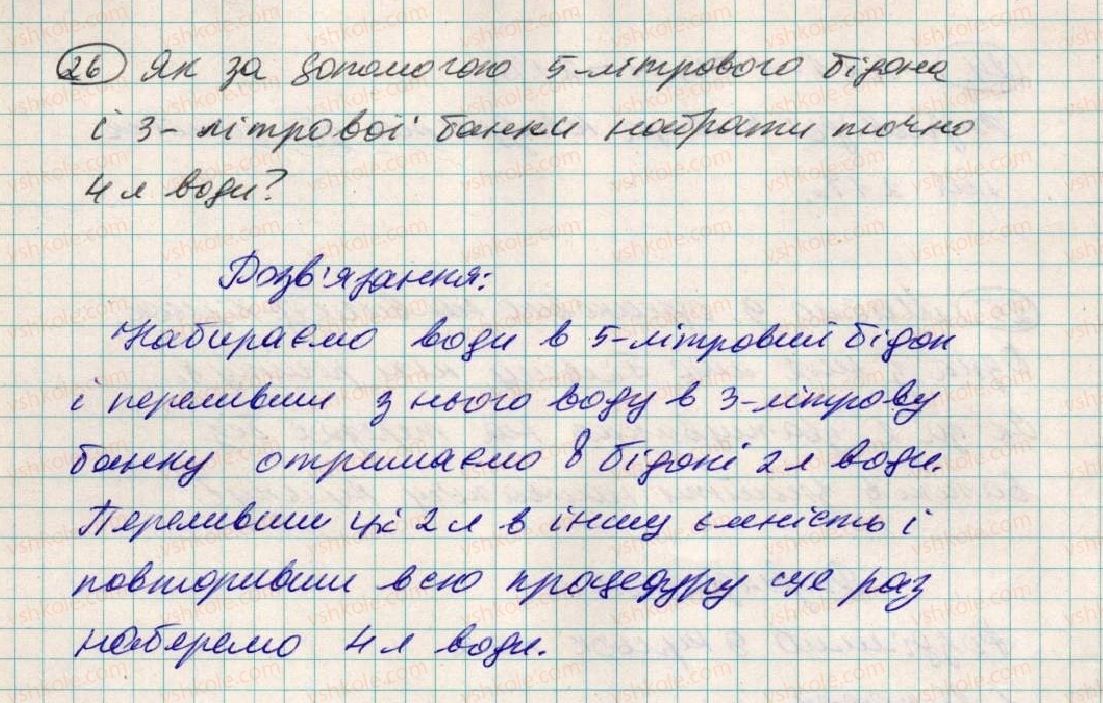 26 Як за допомогою 5-літрового бідона
і 3-літрової банки набрати точно
4 л води?
Розв'язання:
Набираємо води в 5-літровий бідон
і переливши з нього воду в 3-літрову
банку отримаємо в бідоні 2 л води.
Переливши ці 2 л в іншу ємність і
повторивши всю процедуру ще раз
наберемо 4 л води.